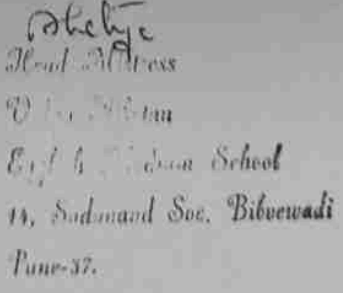 Head Mistress
English Medium School
14, Sadanand Soc. Bibvewadi
Pune-37.